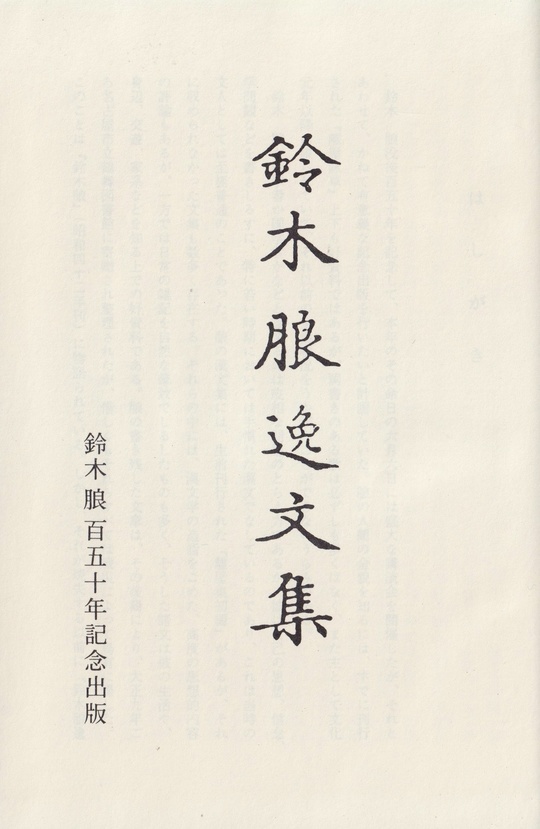 鈴木朖逸文集
鈴木朖百五十年記念出版